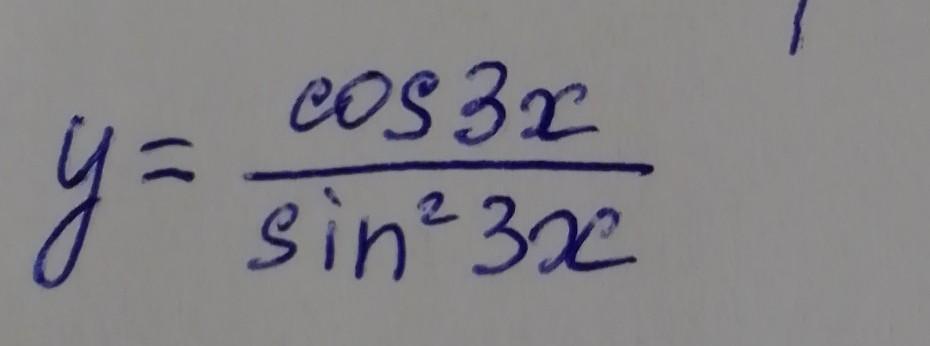 y = cos3x / sin²3x